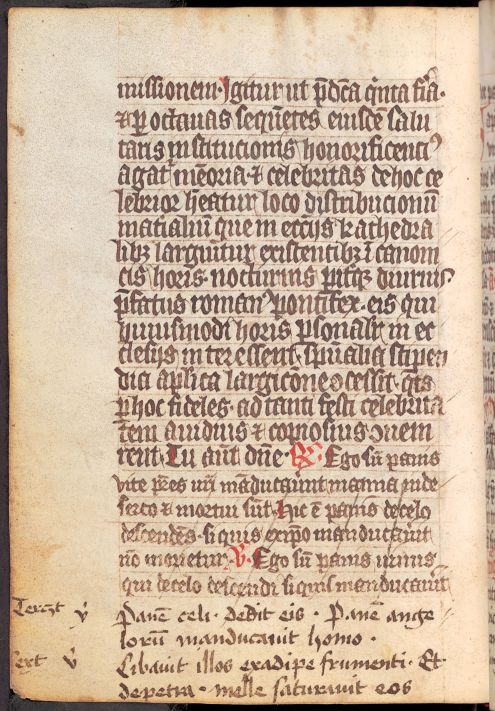 missionem. Igitur ut p̄dc̄a q̄nta fīa.
⁊ ꝑ octauas sequētes eiusdē salu
taris institucionis honorificenciꝰ
agat᷑ mēoria ⁊ celebritas de hoc ce
lebrior h̄eatur loco distribucionū
mat̄ialiū que in ecc̄ijs kathedra
libꝫ largiuntur existentibꝫ ī canoni
cis horis. nocturnis pit̄qꝫ diurnis
p̄fatus roman᷒ pontifex. eis qui
huiusmodi horis ꝑsonalit̄ in ec
clesijs interessent. sp̄ualia stipen
dia aplica largic̄one ↄcessit. q̄tꝰ
ꝑ hoc fideles. ad tanti festi celebrita
tem auidius ⁊ copiosius ↄuem
rent. Tu aut̄ dn̄e. ℟. Ego sū panis
vite pr̄es ur̄i māducauīnt manna in de
serto ⁊ mortui sūt. Hic ē panis de celo
descendēs. si quis ex ip̄o manducauīt
nō morietur. ℣. Ego sū panis uiuus
qui de celo descendi si quis manducauīt
Terc̄ ℣ Panē celi. dedit eis. Panē ange
lorū manducauit homo.
Sext̄ ℣ Cibauit illos ex adipe frumenti. Et
de petra. melle saturauit eos